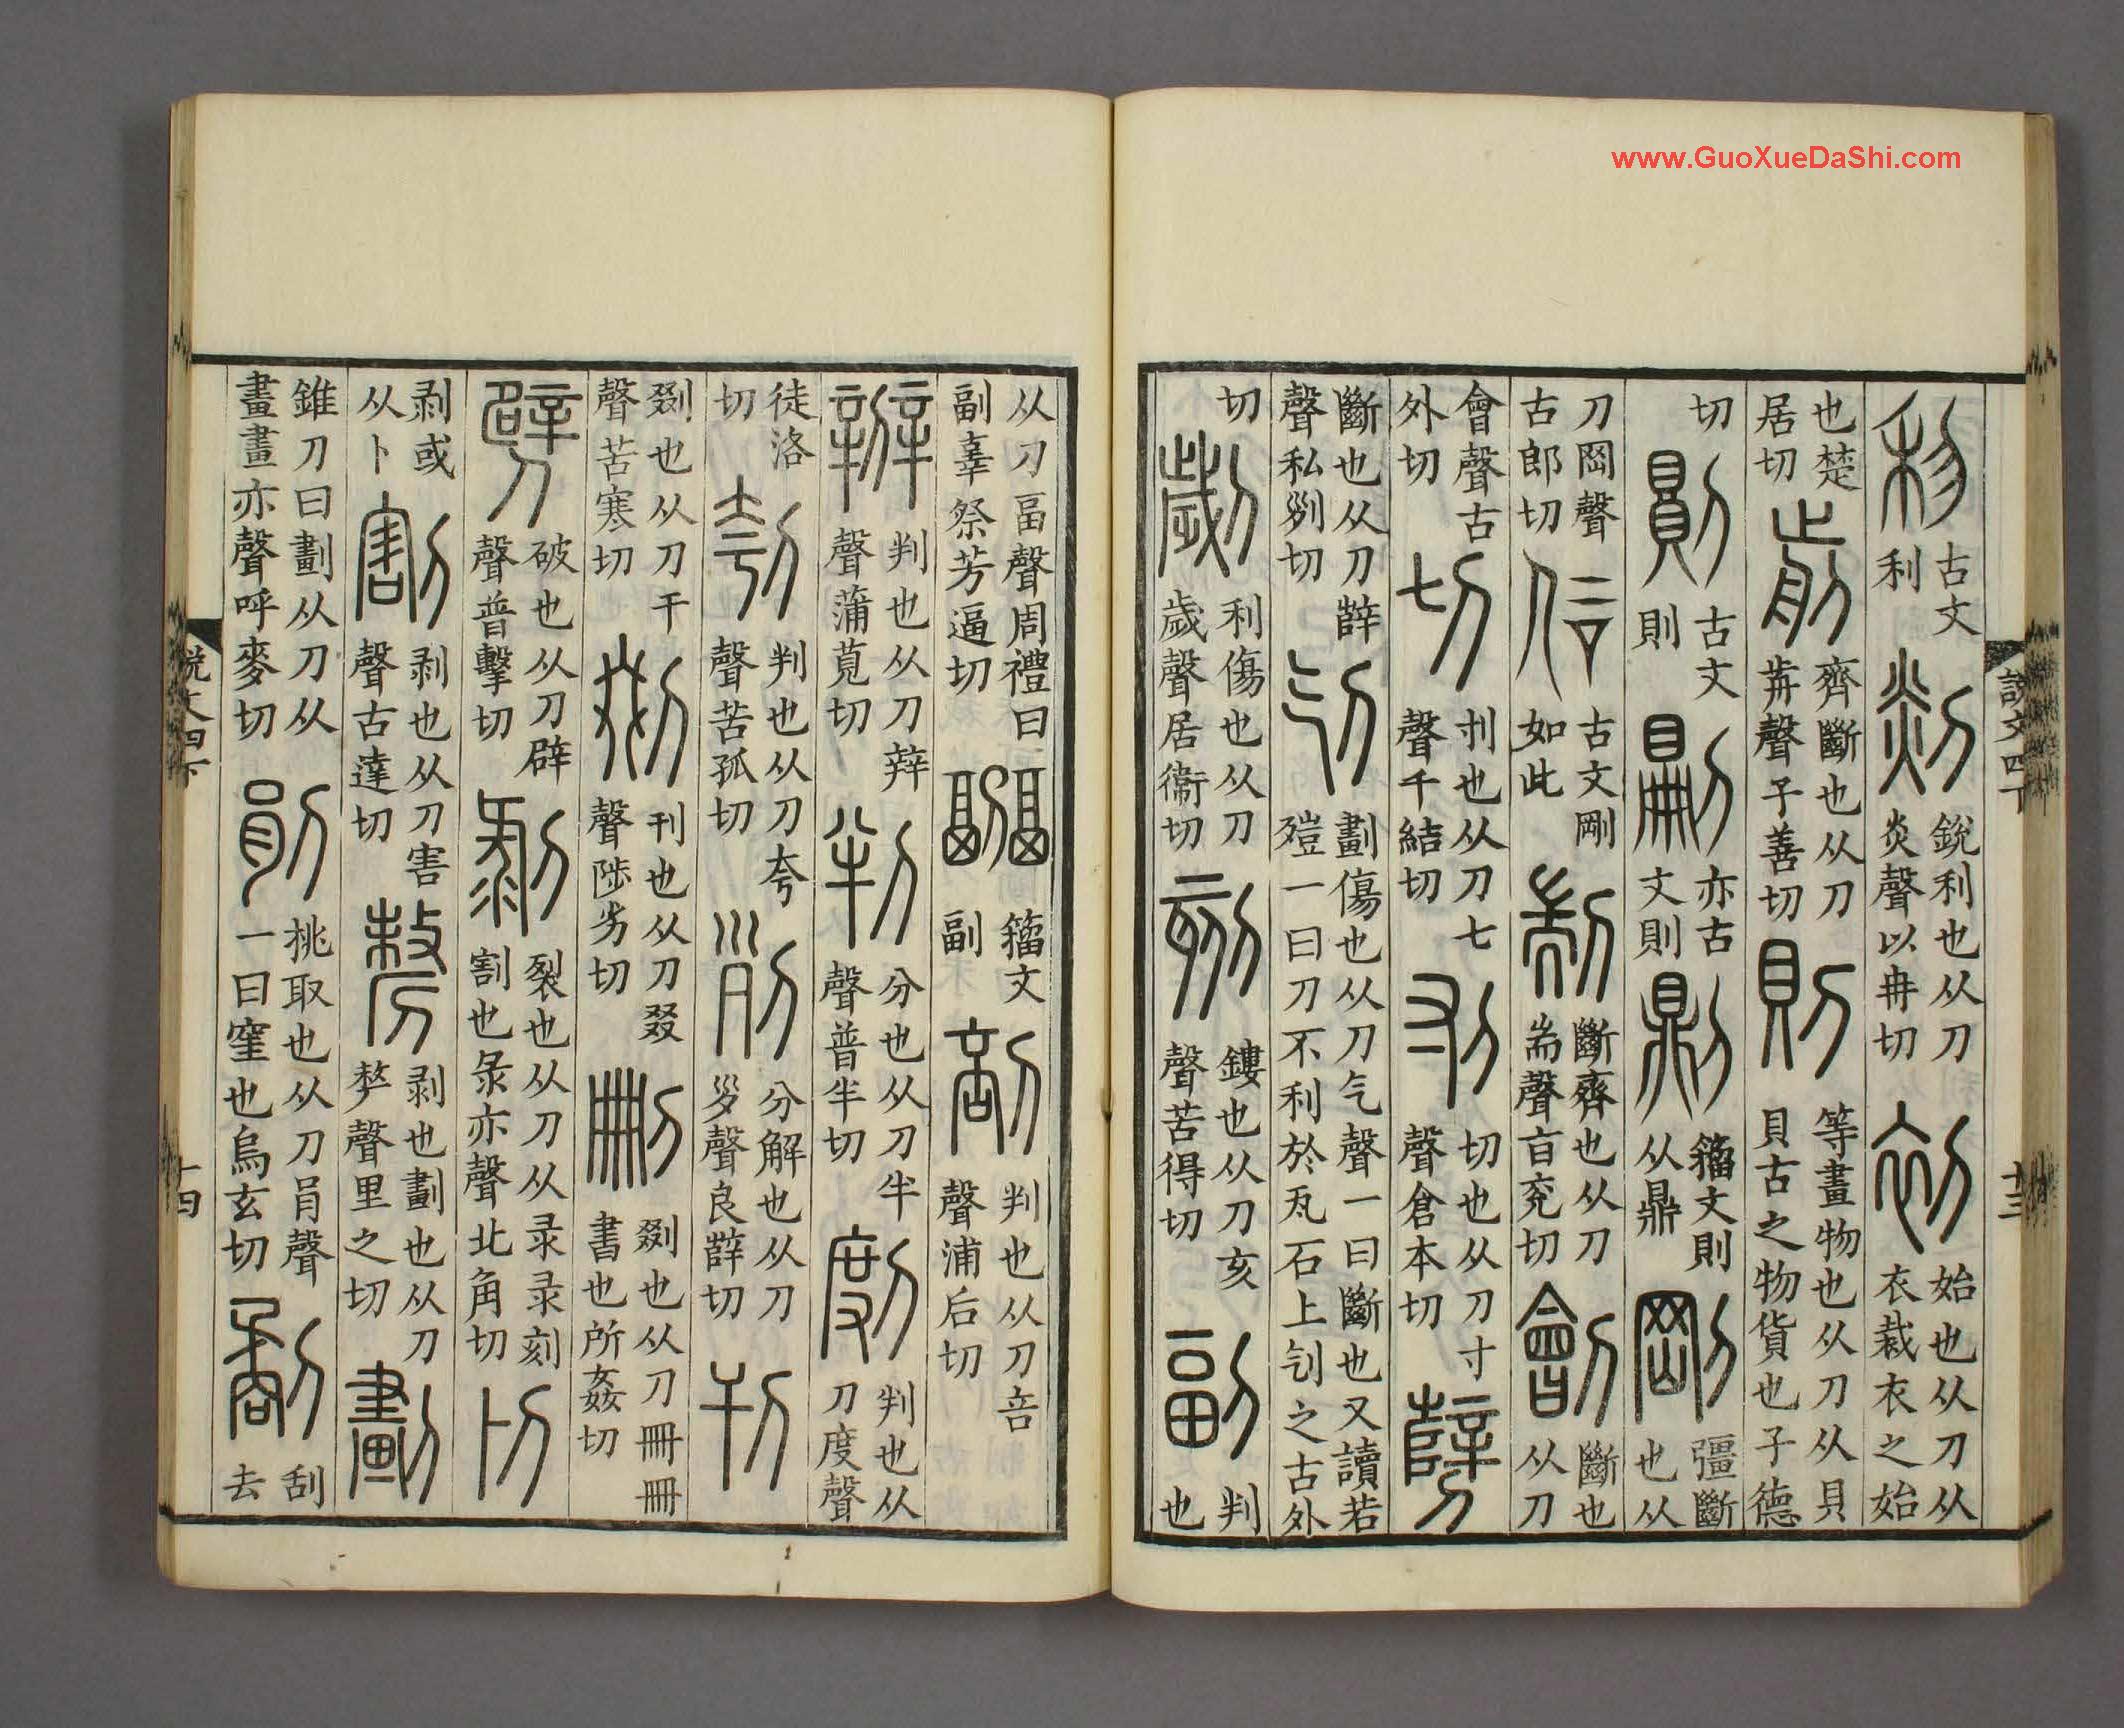 www.GuoXueDaShi.com
說文四下 十三
𥝢古文利剡銳利也从刀炎聲以冉切初始也从刀从衣裁衣之始
也楚居切剪齊斷也从刀歬聲子善切則等畫物也从刀从貝貝古之物貨也子德
切𠟭古文則𠞋亦古文則𠟻籒文則从鼎剛彊斷也从
刀岡聲古郎切𠇙古文剛如此剬斷齊也从刀耑聲旨兖切劊斷也从刀
會聲古外切切刌也从刀七聲千結切刌切也从刀寸聲倉本切
斷也从刀辥聲私列切刉劃傷也从刀气聲一曰斷也又讀若殪一曰刀不利於瓦石上刉之古外
切劌利傷也从刀歲聲居衞切刻鏤也从刀亥聲苦得切副判也
从刀畐聲周禮曰副辜祭芳逼切疈籒文副剖判也从刀咅聲浦后切
辧判也从刀辡聲蒲莧切判分也从刀半聲普半切剫判也从刀度聲
徒洛切刳判也从刀夸聲苦孤切列分解也从刀𡿪聲良薛切刊
剟也从刀干聲苦寒切剟刊也从刀叕聲陟劣切刪剟也从刀冊冊書也所姦切
劈破也从刀辟聲普擊切剥裂也从刀从彔彔刻割也彔亦聲北角切
剥或从卜割剥也从刀害聲古達切剺剥也劃也从刀𠩺聲里之切劃
錐刀曰劃从刀从畫畫亦聲呼麥切剈挑取也从刀肙聲一曰窐也烏玄切劀刮去
說文四下 十四